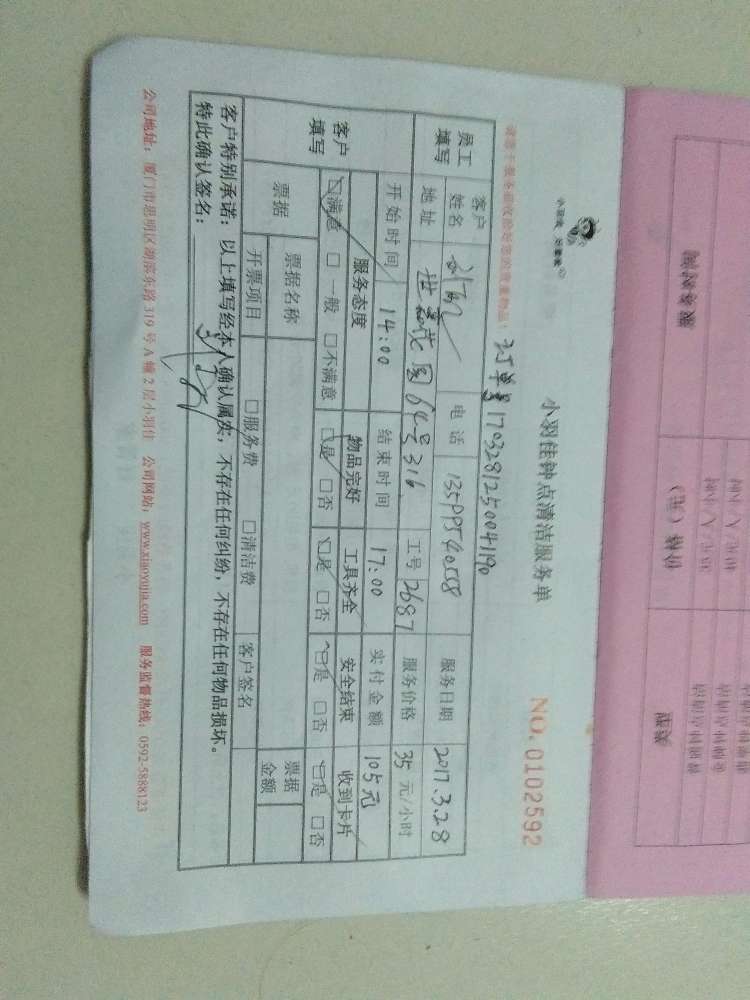 小羽佳钟点清洁服务单
NO.0102592
订单号170328125004190
员工填写
客户姓名 电话 13599540558 服务日期 2017.3.28
地址 世贸花园64号316 工号 2687 服务价格 35元/小时
开始时间 14:00 结束时间 17:00 实付金额 105元
客户填写
服务态度 物品完好 工具齐全 安全结束 收到卡片
□满意 □一般 □不满意 □是 □否 □是 □否 □是 □否 □是 □否
票据 票据名称 票据金额
开票项目 □服务费 □清洁费 客户签名
客户特别承诺:以上填写经本人确认属实,不存在任何纠纷,不存在任何物品损坏。
特此确认签名:
公司地址:厦门市思明区湖滨东路319号A幢2层小羽佳 公司网站:www.xiaoyujia.com 服务监督热线:0592-5888123